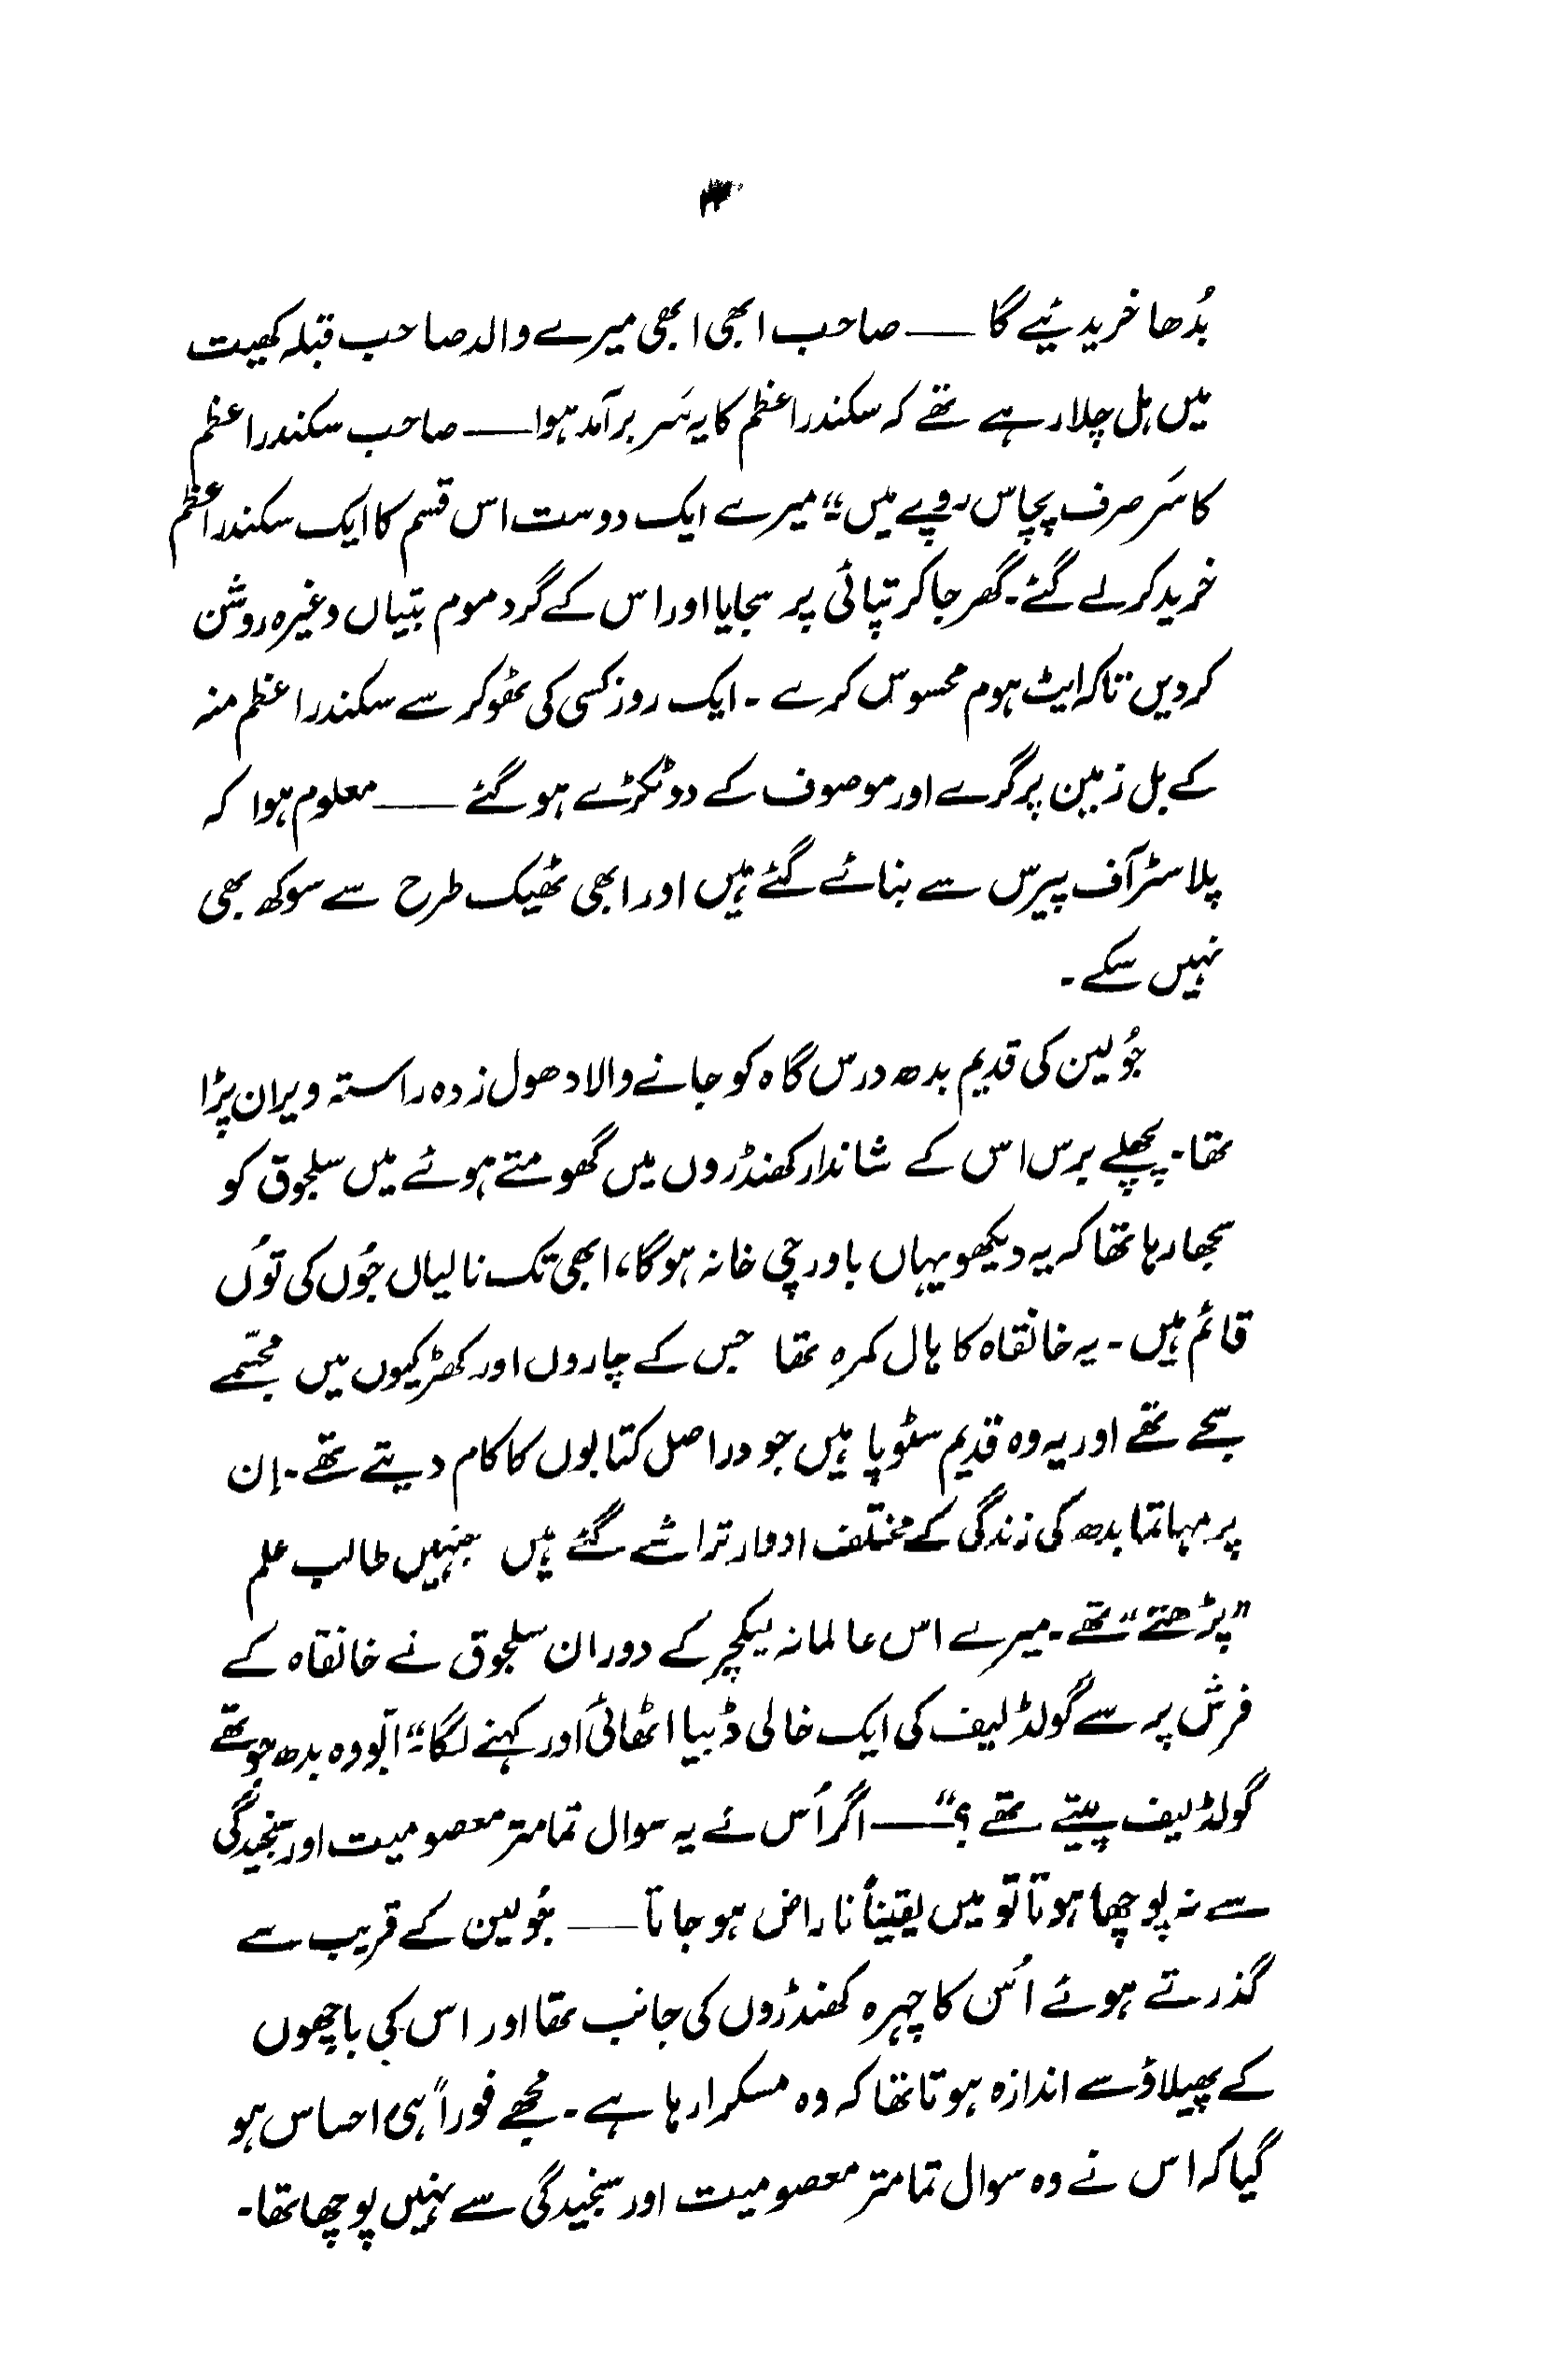 بُدھا خریدئیے گا ـــــ صاحب ابھی ابھی میرے والد صاحب قبلہ کھیت
میں ہل چلا رہے تھے کہ سکندر اعظم کا یہ سَر برآمد ہوا ـــــ صاحب سکندر اعظم
کا سَر صرف پچاس روپے میں"؛ میرے ایک دوست اس قسم کا ایک سکندر اعظم
خرید کر لے گئے۔ گھر جا کر تپائی پر سجایا اور اس کے گرد موم بتیاں وغیرہ روشن
کر دیں تاکہ ایٹ ہوم محسوس کرے ۔ ایک روز کسی کی ٹھوکر سے سکندر اعظم منہ
کے بل زمین پر گرے اور موصوف کے دو ٹکڑے ہو گئے ـــــ معلوم ہوا کہ
پلاسٹر آف پیرس سے بنائے گئے ہیں اور ابھی ٹھیک طرح سے سوکھ بھی
نہیں سکے ۔
جُولین کی قدیم بدھ درس گاہ کو جانے والا دھول زدہ راستہ ویران پڑا
تھا۔ پچھلے برس اس کے شاندار کھنڈروں میں گھومتے ہوئے میں سلجوق کو
سمجھا رہا تھا کہ یہ دیکھو یہاں باورچی خانہ ہو گا، ابھی تک نالیاں جُوں کی تُوں
قائم ہیں ۔ یہ خانقاہ کا ہال کمرہ تھا جس کے چاروں اور کھڑکیوں میں مجسّمے
سجے تھے اور یہ وہ قدیم سٹوپا ہیں جو دراصل کتابوں کا کام دیتے تھے۔ اِن
پر مہاتما بدھ کی زندگی کے مختلف ادوار تراشے گئے ہیں جنہیں طالب علم
"پڑھتے" تھے۔ میرے اس عالمانہ لیکچر کے دوران سلجوق نے خانقاہ کے
فرش پر سے گولڈ لیف کی ایک خالی ڈبیا اٹھائی اور کہنے لگا۔ "ابّو وہ بدھ جو تھے
گولڈ لیف پیتے تھے ؟" ـــــ اگر اُس نے یہ سوال تمام تر معصومیت اور سنجیدگی
سے نہ پوچھا ہوتا تو میں یقیناً ناراض ہو جاتا ـــــ جُولین کے قریب سے
گذرتے ہوئے اُس کا چہرہ کھنڈروں کی جانب تھا اور اس کی باچھوں
کے پھیلاؤ سے اندازہ ہوتا تھا کہ وہ مسکرا رہا ہے ۔ مجھے فوراً ہی احساس ہو
گیا کہ اس نے وہ سوال تمام تر معصومیت اور سنجیدگی سے نہیں پوچھا تھا۔